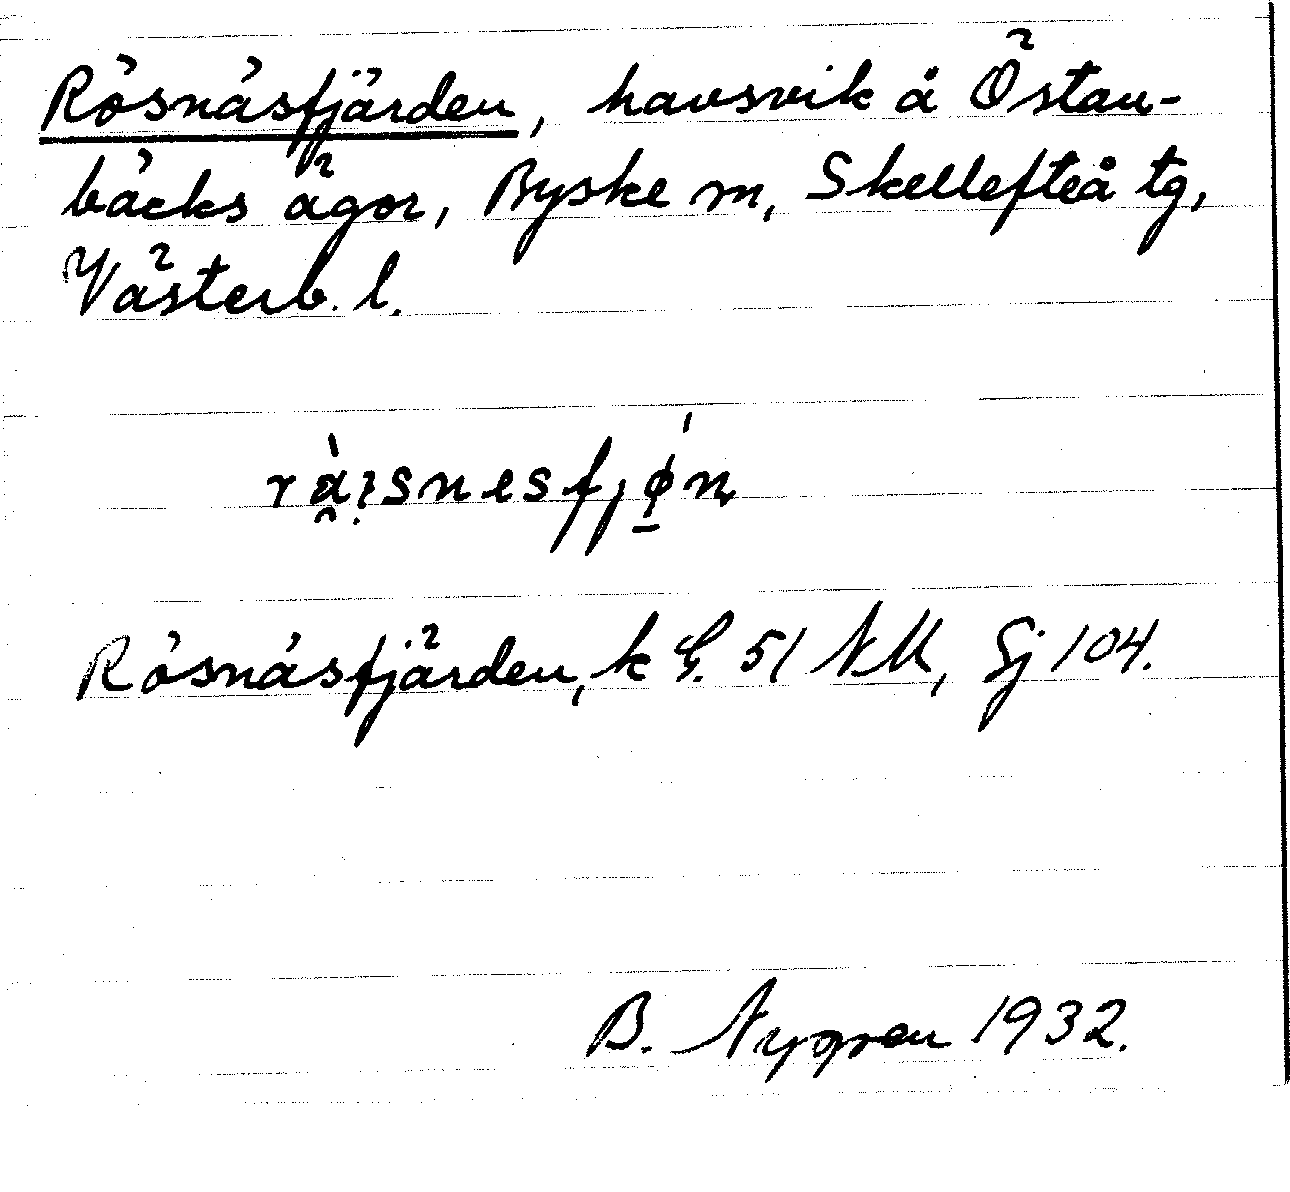 Rösnäsfjärden, havsvik å Östan-
bäcks ägor, Byske sn, Skellefteå tg,
Västerb. l.
Rösnäsfjärden, k G. 51 NK, Sj 104.
B. Nygren 1932.